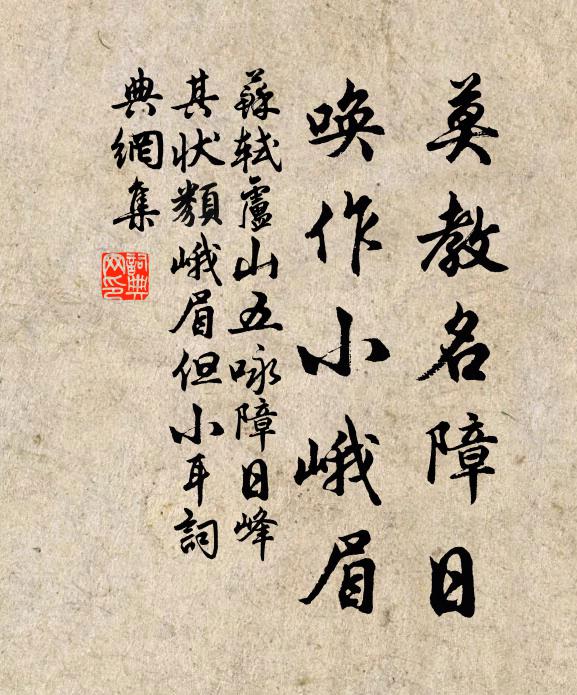 莫教名障日
唤作小峨眉
蘇軾廬山五咏障日峰
其状類峨眉但小耳詞
典網集
詞典
网印